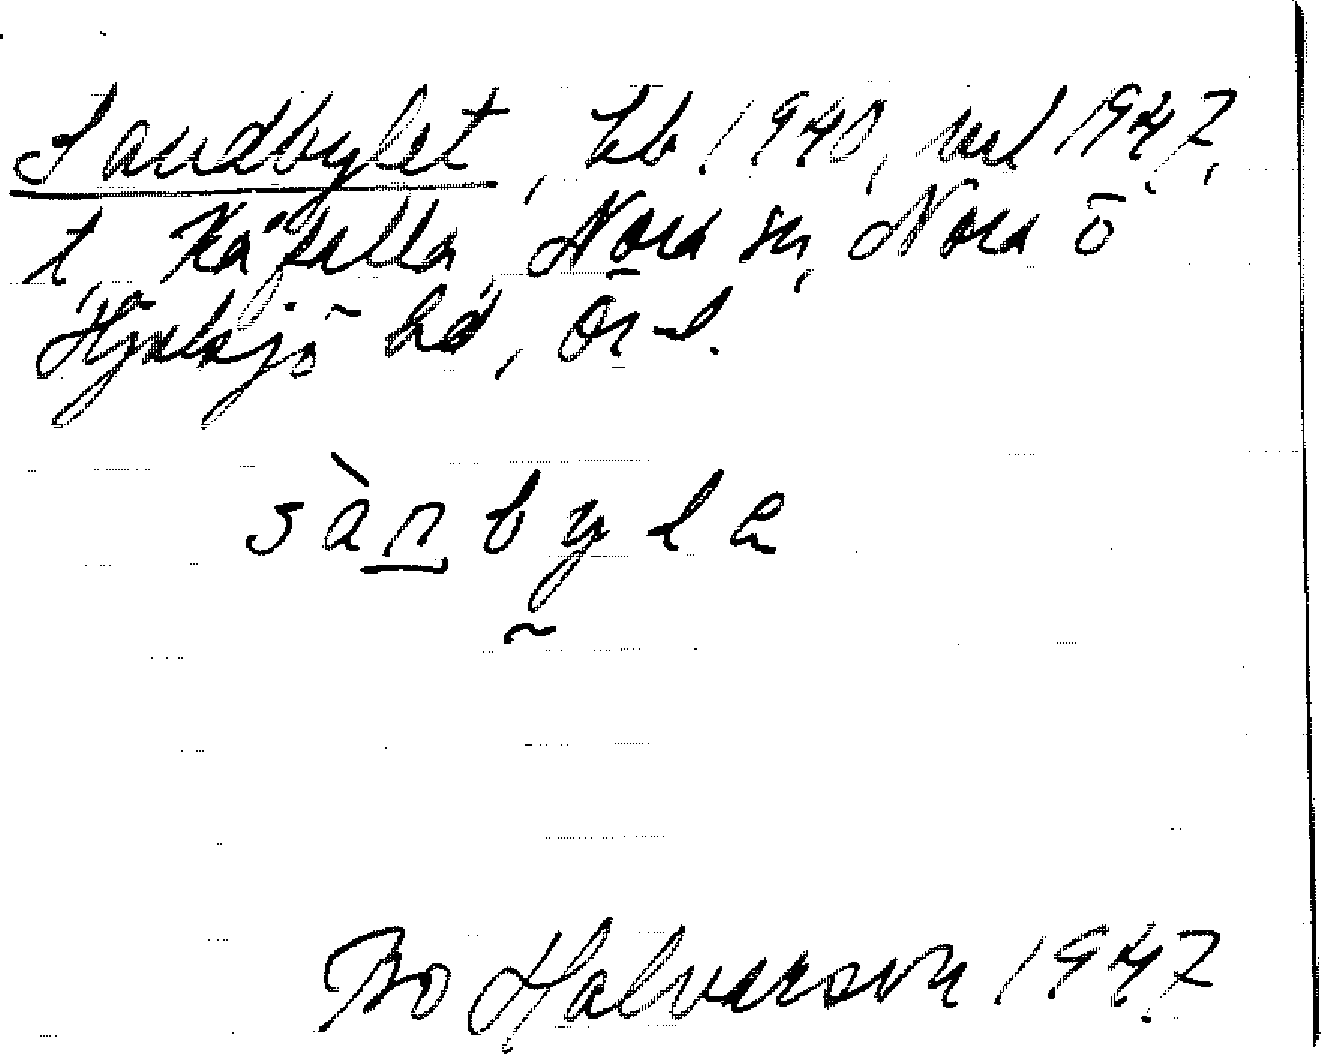 Sandbylet, Lb. 1940, url 1947,
t. Kåfalla, Nora sn, Nora o
Hjulsjö hd, Ör. l.
sànbyla
Bo Halvarson 1947